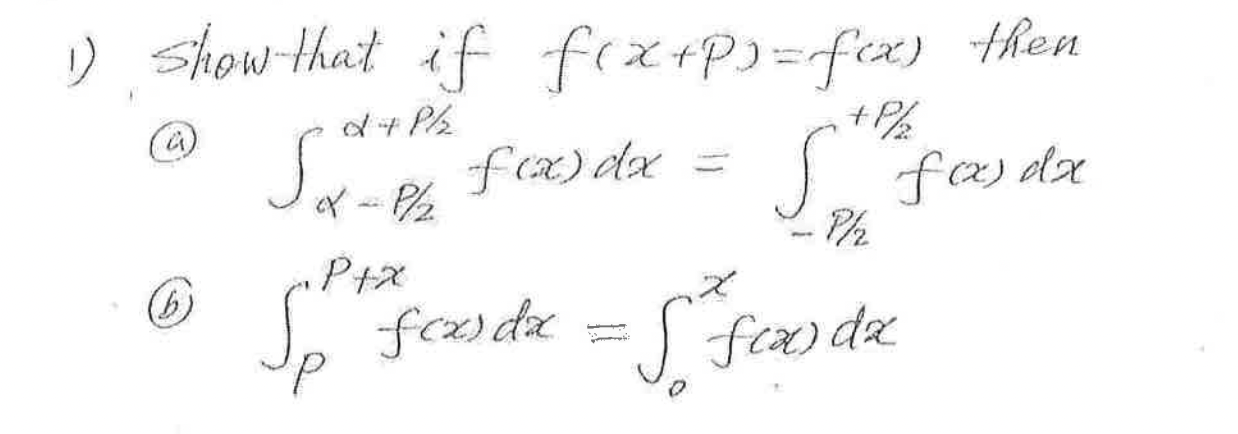 1) Show that if f(x+P)=f(x) then
(a) ∫_{α-P/2}^{α+P/2} f(x) dx = ∫_{-P/2}^{+P/2} f(x) dx
(b) ∫_{P}^{P+x} f(x) dx = ∫_{0}^{x} f(x) dx